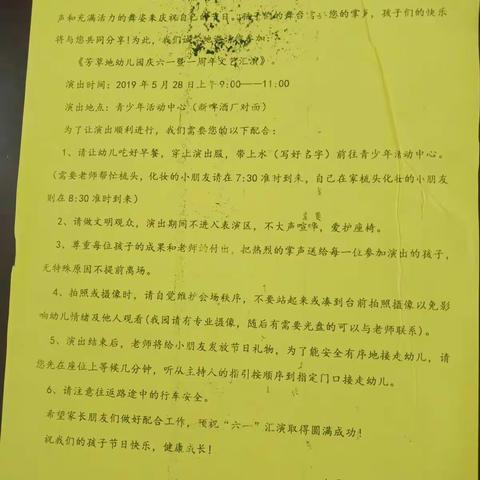 声和充满活力的舞姿来庆祝自己的节日。孩子们的舞台需要您的掌声，孩子们的快乐
将与您共同分享!为此，我们诚挚地邀请您参加：
《芳草地幼儿园庆六一暨一周年文艺汇演》。
演出时间：2019年5月28日上午9:00——11:00
演出地点：青少年活动中心（崂啤酒厂对面）
为了让演出顺利进行，我们需要您的以下配合：
1、请让幼儿吃好早餐，穿上演出服，带上水（写好名字）前往青少年活动中心。
（需要老师帮忙梳头，化妆的小朋友请在7:30准时到来，自己在家梳头化妆的小朋友
则在8:30准时到来）
2、请做文明观众，演出期间不进入表演区，不大声喧哗，爱护座椅。
3、尊重每位孩子的成果和老师的付出，把热烈的掌声送给每一位参加演出的孩子，
无特殊原因不提前离场。
4、拍照或摄像时，请自觉维护会场秩序，不要站起来或凑到台前拍照摄像以免影
响幼儿情绪及他人观看(我园请有专业摄像，随后有需要光盘的可以与老师联系)。
5、演出结束后，老师将给小朋友发放节日礼物，为了能安全有序地接走幼儿，请
您先在座位上等候几分钟，听从主持人的指引按顺序到指定门口接走幼儿。
6、请注意往返路途中的行车安全。
希望家长朋友们做好配合工作，预祝“六一”汇演取得圆满成功！
祝我们的孩子节日快乐，健康成长！